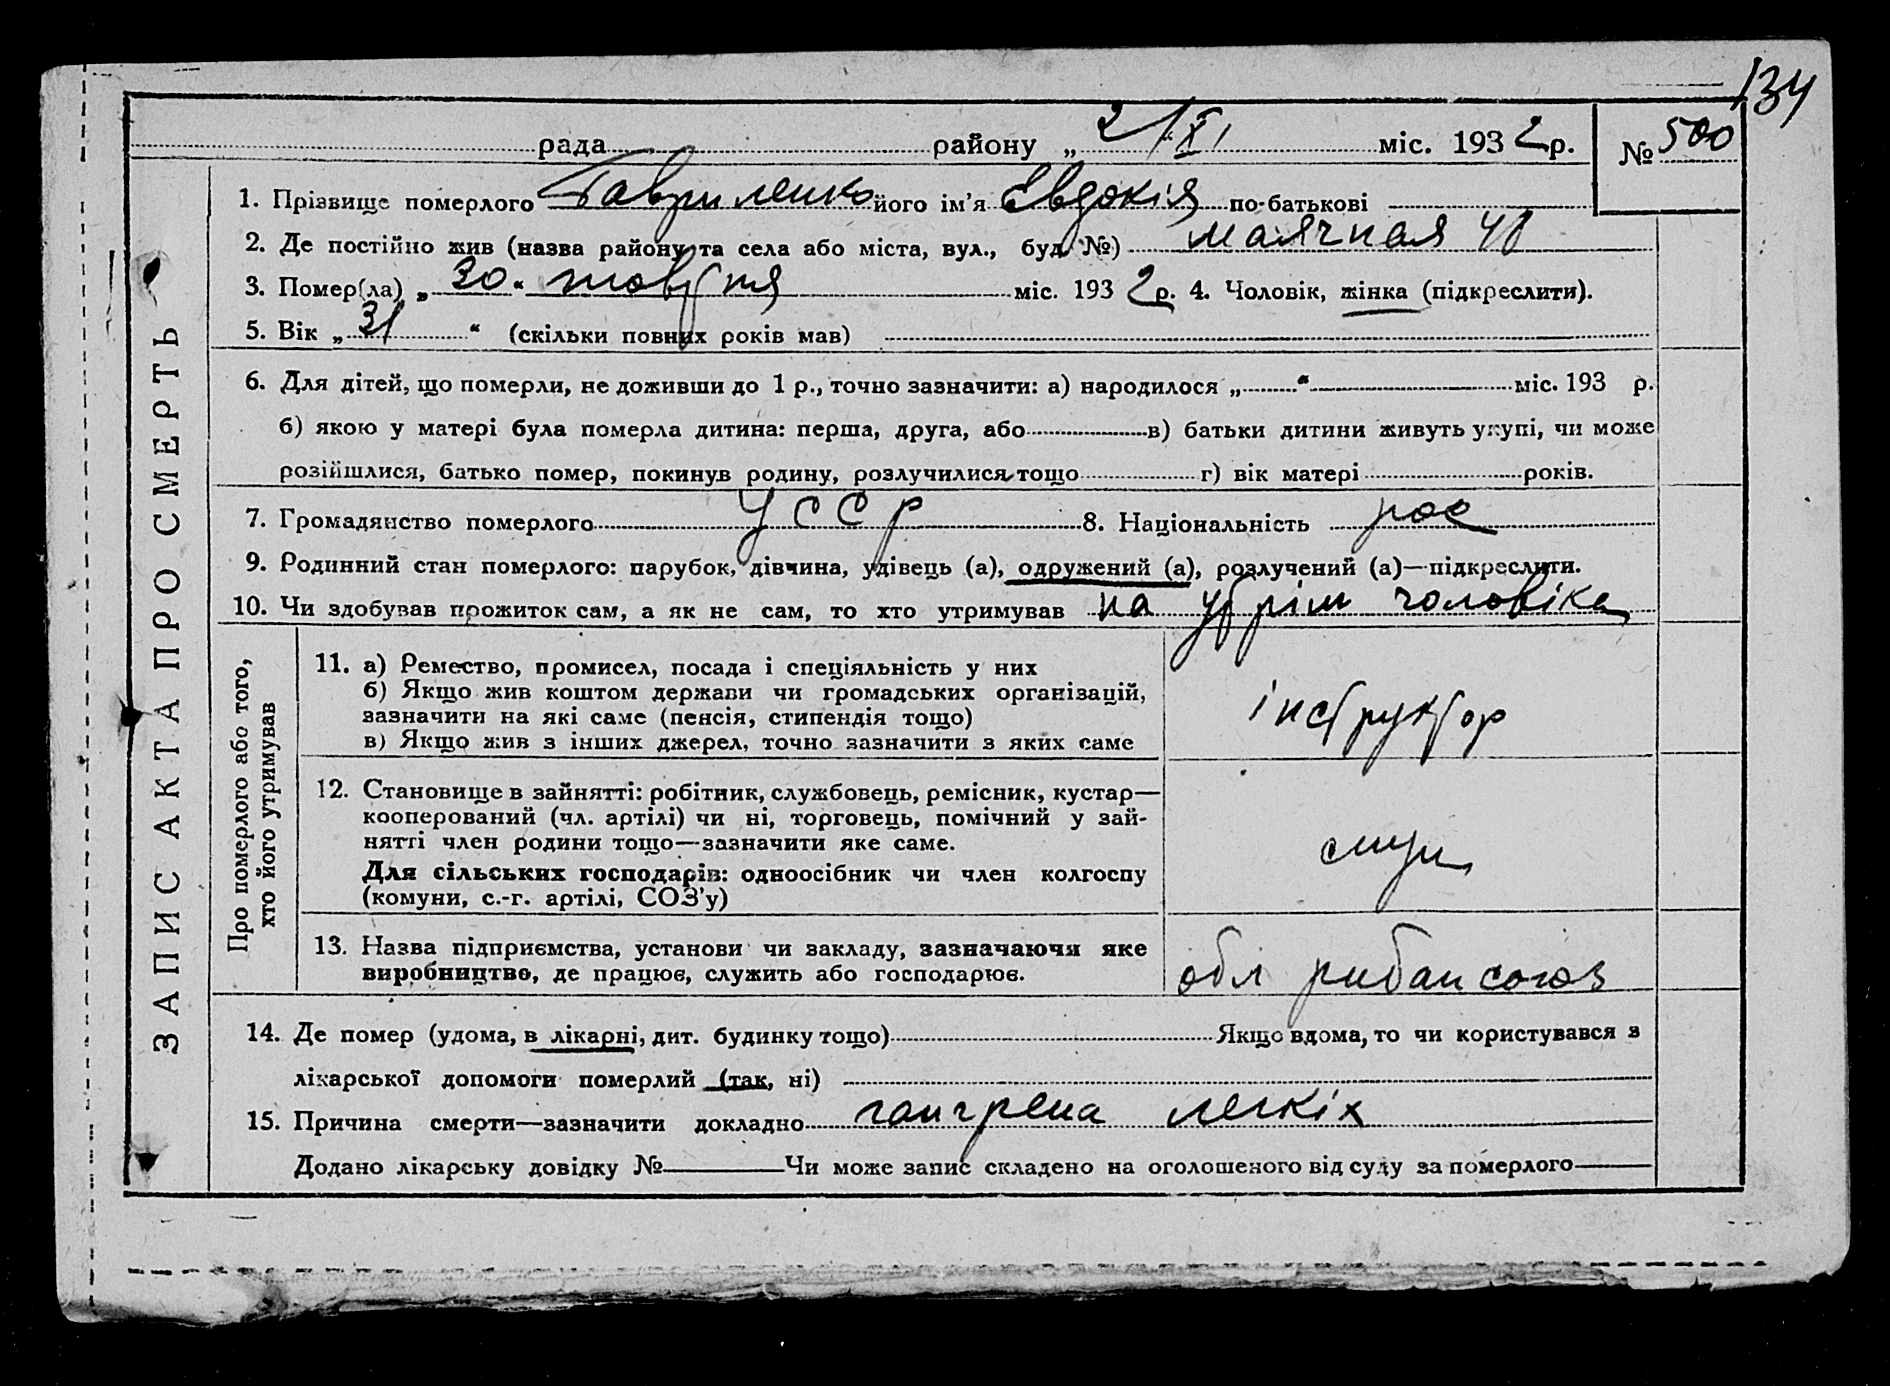 134
рада района „ 2/XI міс. 1932 р. № 500
ЗАПИС АКТА ПРО СМЕРТЬ
1. Прізвище померлого Гавриленко його ім'я Євдокія по-батькові
2. Де постійно жив (назва району та села або міста, вул., буд. №) маячная 40
3. Помер(ла) „ 30 “ жовтня міс. 1932 р. 4. Чоловік, жінка (підкреслити).
5. Вік „ 31 “ (скільки повних років мав)
6. Для дітей, що померли, не доживши до 1 р., точно зазначити: а) народилося „ “ міс. 193 р.
б) якою у матері була померла дитина: перша, друга, або в) батьки дитини живуть укупі, чи може
розійшлися, батько помер, покинув родину, розлучилися тощо г) вік матері років.
7. Громадянство померлого УССР 8. Національність рос
9. Родинний стан померлого: парубок, дівчина, удівець (а), одружений (а), розлучений (а)—підкреслити.
10. Чи здобував прожиток сам, а як не сам, то хто утримував на утрім чоловіка
Про померлого або того,
хто його утримував
11. а) Ремество, промисел, посада і спеціяльність у них
б) Якщо жив коштом держави чи громадських організацій,
зазначити на які саме (пенсія, стипендія тощо)
в) Якщо жив з інших джерел, точно зазначити з яких саме
інструктор
12. Становище в зайнятті: робітник, службовець, ремісник, кустар—
кооперований (чл. артілі) чи ні, торговець, помічний у зай-
нятті член родини тощо—зазначити яке саме.
Для сільських господарів: одноосібник чи член колгоспу
(комуни, с.-г. артілі, СОЗ'у)
13. Назва підприємства, установи чи закладу, зазначаючи яке
виробництво, де працює, служить або господарює.
обл рибаксоюз
14. Де помер (удома, в лікарні, дит. будинку тощо) Якщо вдома, то чи користувався з
лікарської допомоги померлий (так, ні)
15. Причина смерти—зазначити докладно гангрена легкіх
Додано лікарську довідку № Чи може запис складено на оголошеного від суду за померлого